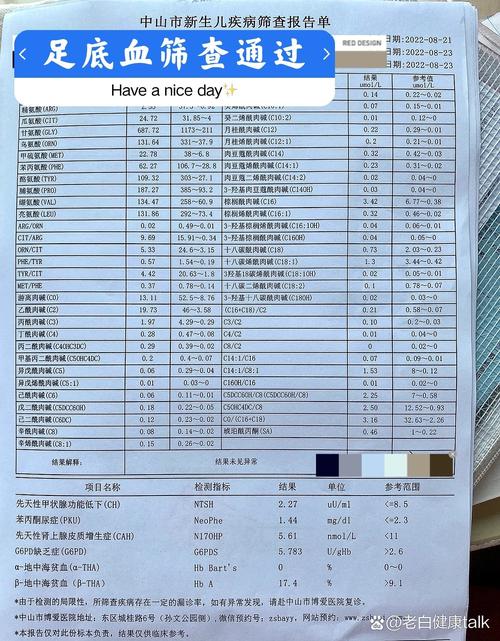 中山市新生儿疾病筛查报告单
足底血筛查通过
Have a nice day✨
RED DESIGN
日期:2022-08-21
日期:2022-08-23
2022-08-23
结果 参考值
umol/L umol/L
0.14 0.22~0.02
精氨酸(ARG) 0.07 0.15~0.01
瓜氨酸(CIT) 24.72 31.85~4 癸二烯酰肉碱(C10:2) 0.01 0.12~0
甘氨酸(GLY) 687.72 1173~211 月桂酰肉碱(C12) 0.22 0.29~0.01
鸟氨酸(ORN) 131.64 331~37.9 月桂烯酰肉碱(C12:1) 0.2 0.21~0.01
甲硫氨酸(MET) 22.78 38~6.8 肉豆蔻酰肉碱(C14) 0.23 0.42~0.05
苯丙氨酸(PHE) 62.27 106.7~28.8 肉豆蔻烯酰肉碱(C14:1) 0.23 0.31~0.02
酪氨酸(TYR) 109.32 303~27.1 肉豆蔻二烯酰肉碱(C14:2) 0.03 0.04~0
脯氨酸(PRO) 187.27 385~93.2 3-羟基肉豆蔻酰肉碱(C14OH) 0.03 0.04~0
缬氨酸(VAL) 134.47 258~60.9 棕榈酰肉碱(C16) 3.42 6.77~0.38
亮氨酸(LEU) 131.86 292~73.4 棕榈烯酰肉碱(C16:1) 0.32 0.46~0.02
ARG/ORN 0.02 0.49~0.01 3-羟基棕榈烯酰肉碱(C16:1OH) 0.04 0.06~0.01
CIT/ARG 9.69 15.91~0.34 3-羟基棕榈酰肉碱(C16OH) 0.04 0.05~0
ORN/CIT 5.33 24.6~3.15 十八碳酰肉碱(C18) 0.73 2.03~0.23
PHE/TYR 0.57 1.54~0.19 十八碳烯酰肉碱(C18:1) 1.3 3.44~0.42
TYR/CIT 4.42 20.63~1.8 3-羟基18碳烯酰肉碱(C18:1OH) 0.02 0.05~0.01
MET/PHE 0.37 0.78~0.14 十八碳二烯酰肉碱(C18:2) 0.1 0.78~0.07
游离肉碱(C0) 13.11 52.5~8.76 3-羟基十八碳酰肉碱(C18OH) 0.02 0.03~0
乙酰肉碱(C2) 19.73 46~3.58 (C16+C18)/C2 0.21 0.58~0.07
丙酰肉碱(C3) 1.97 4.29~0.29 C3/C2 0.10 0.2~0.03
丁酰肉碱(C4) 0.28 0.47~0.08 C4/C2 0.01 0.04~0
丙二酰肉碱(C4OHC3DC) 0.29 0.39~0.02 C8/C2 0 0.02~0
甲基丙二酰肉碱(C5OHC4DC) 0.2 0.4~0.07 C14:1/C16 0.07 0.09~0.01
异戊酰肉碱(C5) 0.06 0.29~0.04 C14:1/C8:1 1.53 8~0.12
异戊烯酰肉碱(C5:1) 0.01 0.03~0 C16OH/C16 0.01 0.02~0
己酰肉碱(C6) 0.06 0.11~0.01 C5DCC6OH/C8(C5DCC6OH/C8) 2.25 7~0.58
戊二酰肉碱(C5DCC6OH) 0.18 0.22~0.05 C5OHC4DC/C8 2.50 12.52~0.93
己二酰肉碱(C6DC) 0.12 0.23~0.04 C0/(C16+C18) 3.16 32.63~2.26
辛酰肉碱(C8) 0.08 0.14~0.02 琥珀酰丙酮(SA) 0.46 1~0.22
辛烯酰肉碱(C8:1) 0.15 0.26~0.02
结果解释: 结果未见异常
项目名称 检测指标 结果 单位 参考范围
先天性甲状腺功能低下(CH) NTSH 2.27 uU/ml <=8.5
苯丙酮尿症(PKU) NeoPhe 1.44 mg/dl <=2.3
先天性肾上腺皮质增生症(CAH) N17OHP 5.61 nmol/L <11
G6PD缺乏症(G6PD) G6PDS 5.783 U/gHb >2.6
α-地中海贫血(α-THA) Hb Bart's 0 % 0~0
β-地中海贫血(β-THA) Hb A 17.4 % >9.1
*由于检测的局限性,所筛查疾病存在一定的漏诊率,如有异常发现,请赴中山市博爱医院复诊。
*中山市博爱医院地址: 东区城桂路6号(孙文公园侧),微信预约号:zsbayy,网站预约: www.zsb
*本报告仅对此份标本负责,结果仅供临床参考。
@老白健康talk